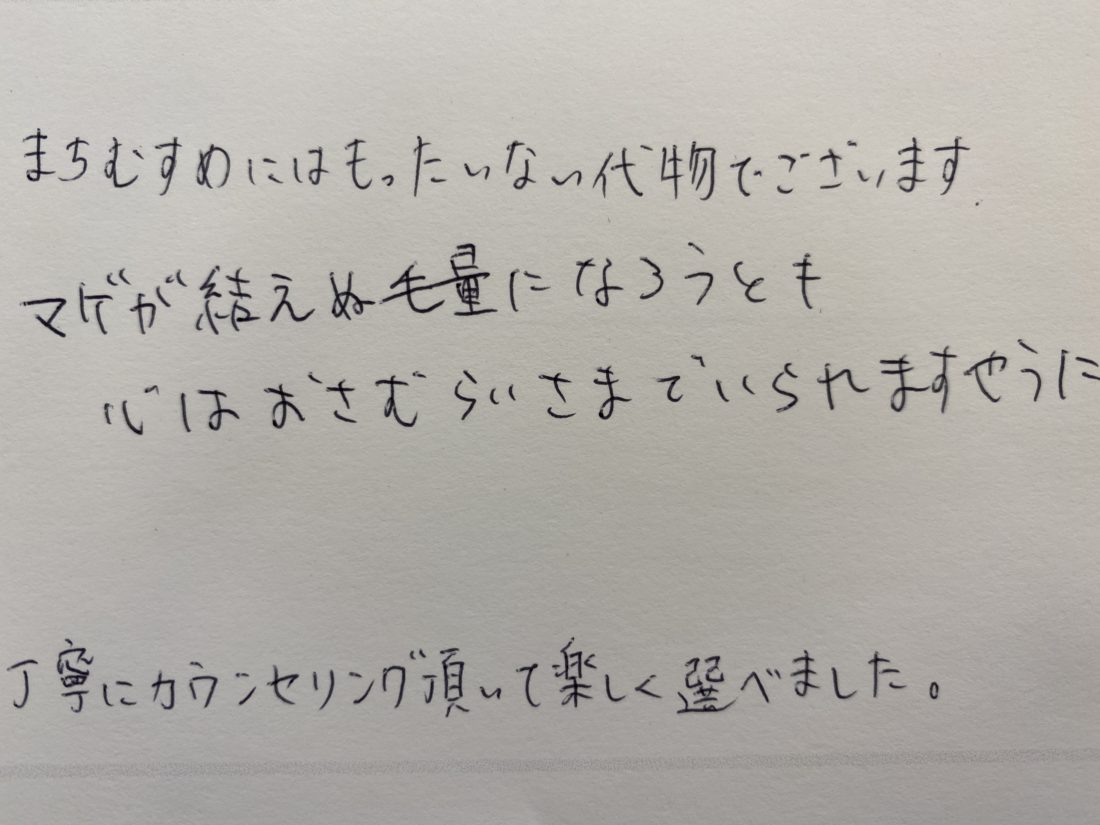 まちむすめにはもったいない代物でございます
マゲが結えぬ毛量になろうとも
心はおさむらいさまでいられますやうに
丁寧にカウンセリング頂いて楽しく選べました。